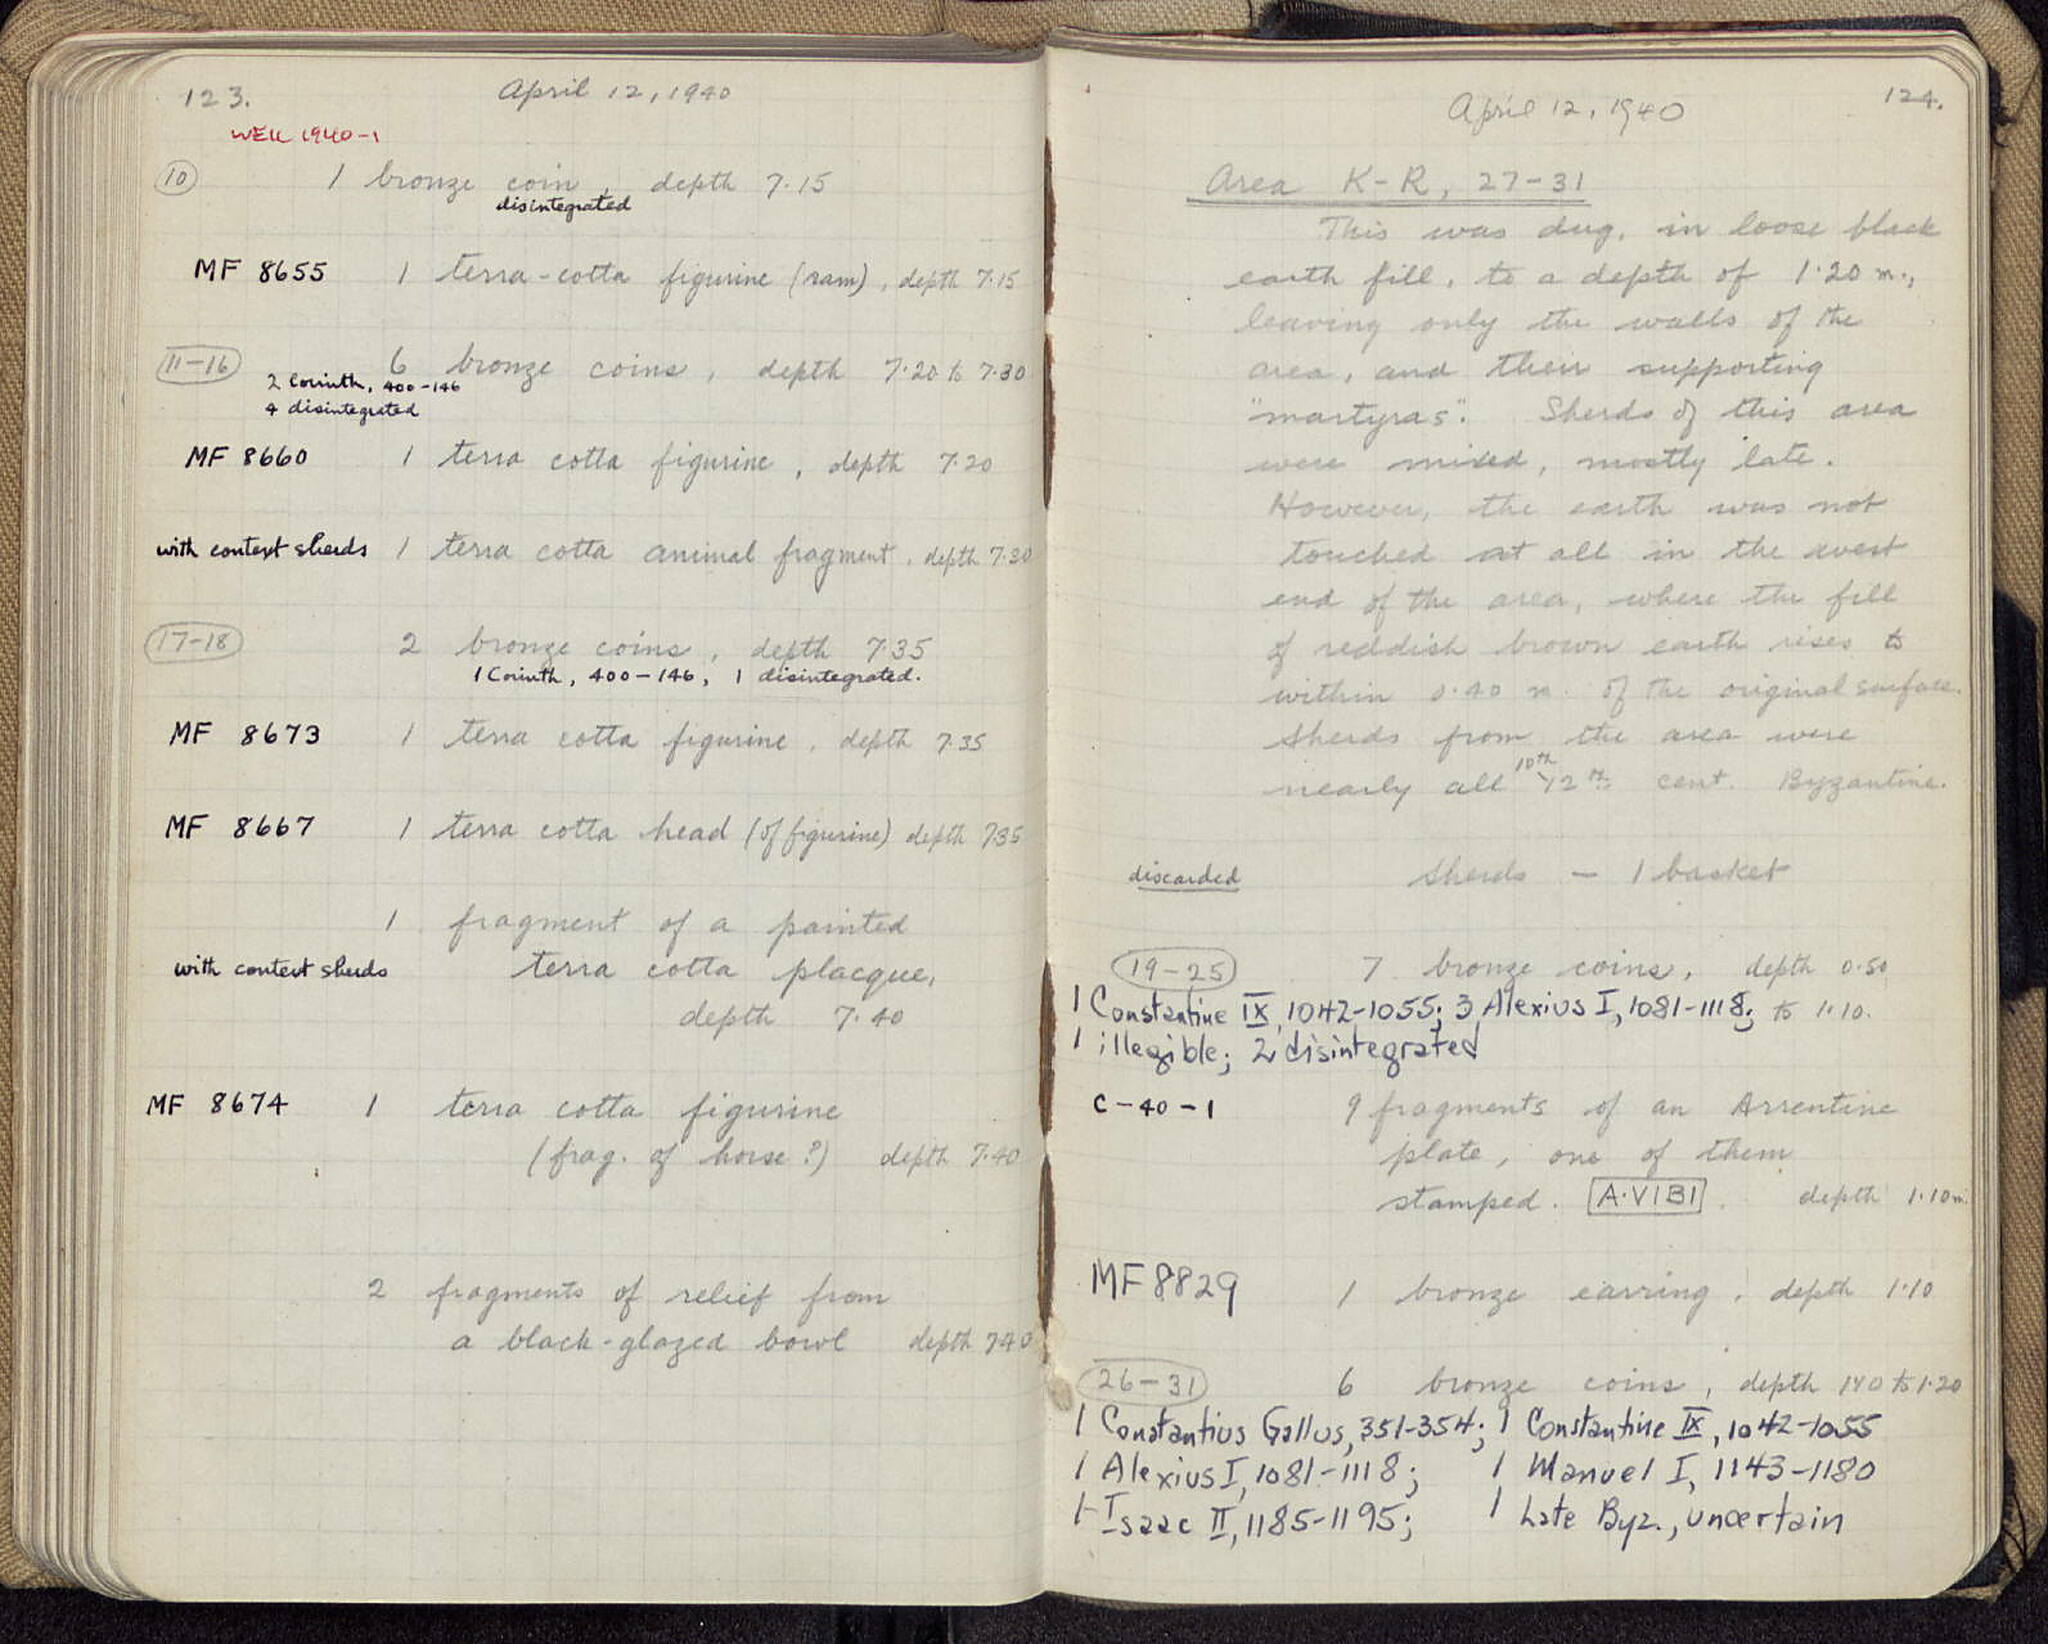 123. April 12, 1940
WELL 1940-1
10 1 bronze coin, depth 7.15
disintegrated
MF 8655 1 terra-cotta figurine (ram), depth 7.15
11-16 6 bronze coins, depth 7.20 to 7.30
2 Corinth, 400-146
4 disintegrated
MF 8660 1 terra cotta figurine, depth 7.20
with context sherds 1 terra cotta animal fragment, depth 7.30
17-18 2 bronze coins, depth 7.35
1 Corinth, 400-146, 1 disintegrated.
MF 8673 1 terra cotta figurine, depth 7.35
MF 8667 1 terra cotta head (of figurine) depth 7.35
1 fragment of a painted
with context sherds terra cotta placque,
depth 7.40
MF 8674 1 terra cotta figurine
(frag. of horse?) depth 7.40
2 fragments of relief from
a black-glazed bowl depth 7.40
124.
April 12, 1940
Area K-R, 27-31
This was dug, in loose black
earth fill, to a depth of 1.20 m.,
leaving only the walls of the
area, and their supporting
"martyras". Sherds of this area
were mixed, mostly late.
However, the earth was not
touched at all in the west
end of the area, where the fill
of reddish brown earth rises to
within 0.40 m. of the original surface.
Sherds from the area were
nearly all 10th-12th cent. Byzantine.
discarded Sherds – 1 basket
19-25 7 bronze coins, depth 0.50
1 Constantine IX, 1042-1055; 3 Alexius I, 1081-1118; to 1.10.
1 illegible; 2 disintegrated
C-40-1 9 fragments of an Arrentine
plate, one of them
stamped. A·VIBI. depth 1.10 m.
MF 8829 1 bronze earring, depth 1.10
26-31 6 bronze coins, depth to 1.20
1 Constantius Gallus, 351-354; 1 Constantine IX, 1042-1055
1 Alexius I, 1081-1118; 1 Manuel I, 1143-1180
1 Isaac II, 1185-1195; 1 Late Byz., uncertain